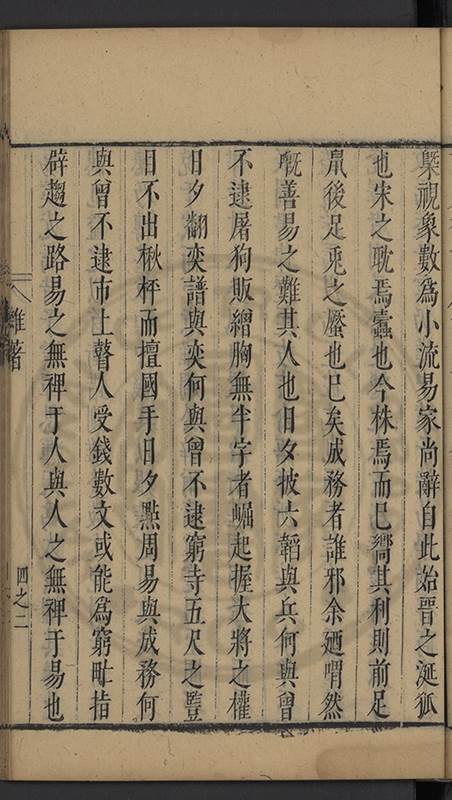 槩視象數爲小流易家尚辭自此始晉之涎狐
也宋之耽焉蠹也今株焉而已嚮其利則前足
鼠後足兎之蹷也已矣成務者誰邪余廼喟然
嘅善易之難其人也日夕披六韜與兵何與曾
不逮屠狗販繒胸無半字者崛起握大將之權
日夕翻奕譜與奕何與曾不逮窮寺五尺之豎
目不出楸枰而擅國手日夕㸃周易與成務何
與曾不逮市上瞽人受錢數文或能爲窮甿指
辟趨之路易之無裨于人與人之無裨于易也
雜著
四之二